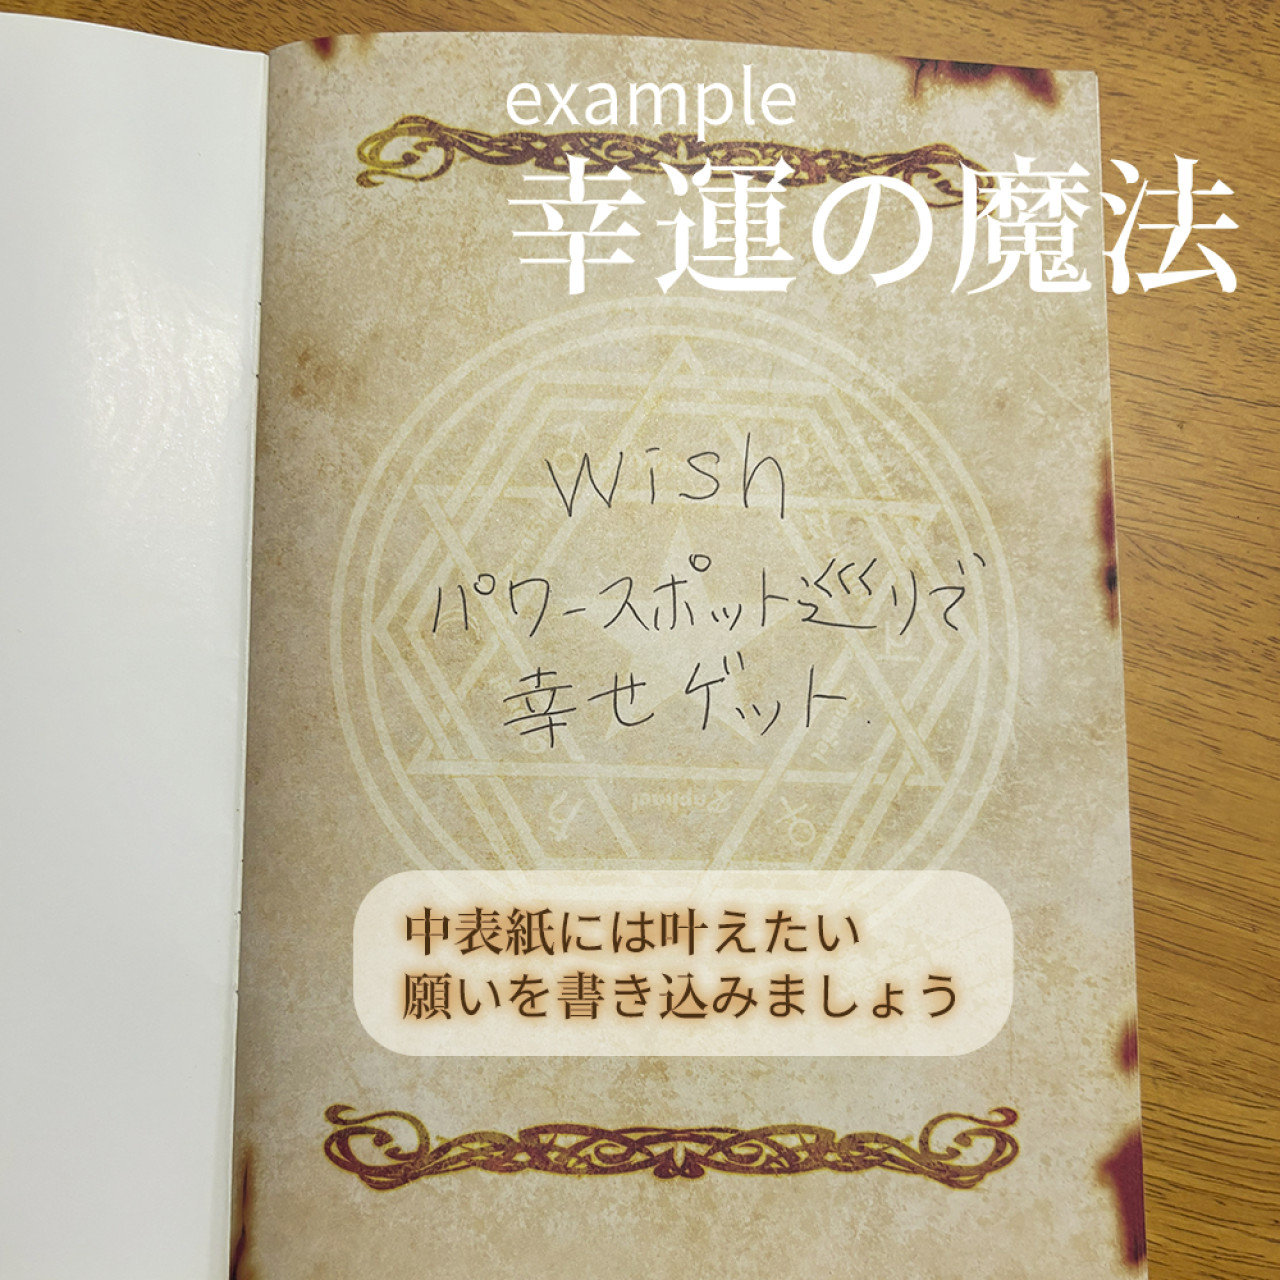 example
幸運の魔法
Wish
パワースポット巡りで
幸せゲット.
Raphael
中表紙には叶えたい
願いを書き込みましょう